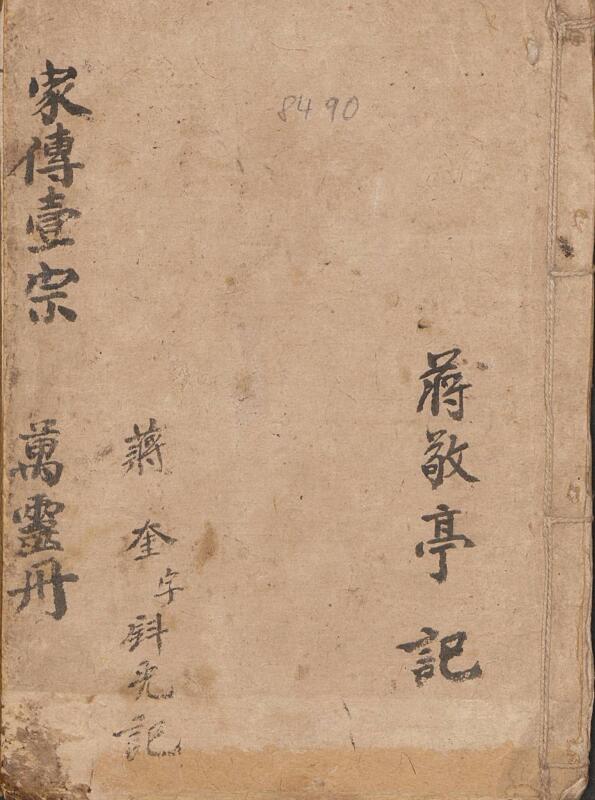 8490
蔣敬亭 記
蔣 奎字 記
家傳壹宗 萬靈册